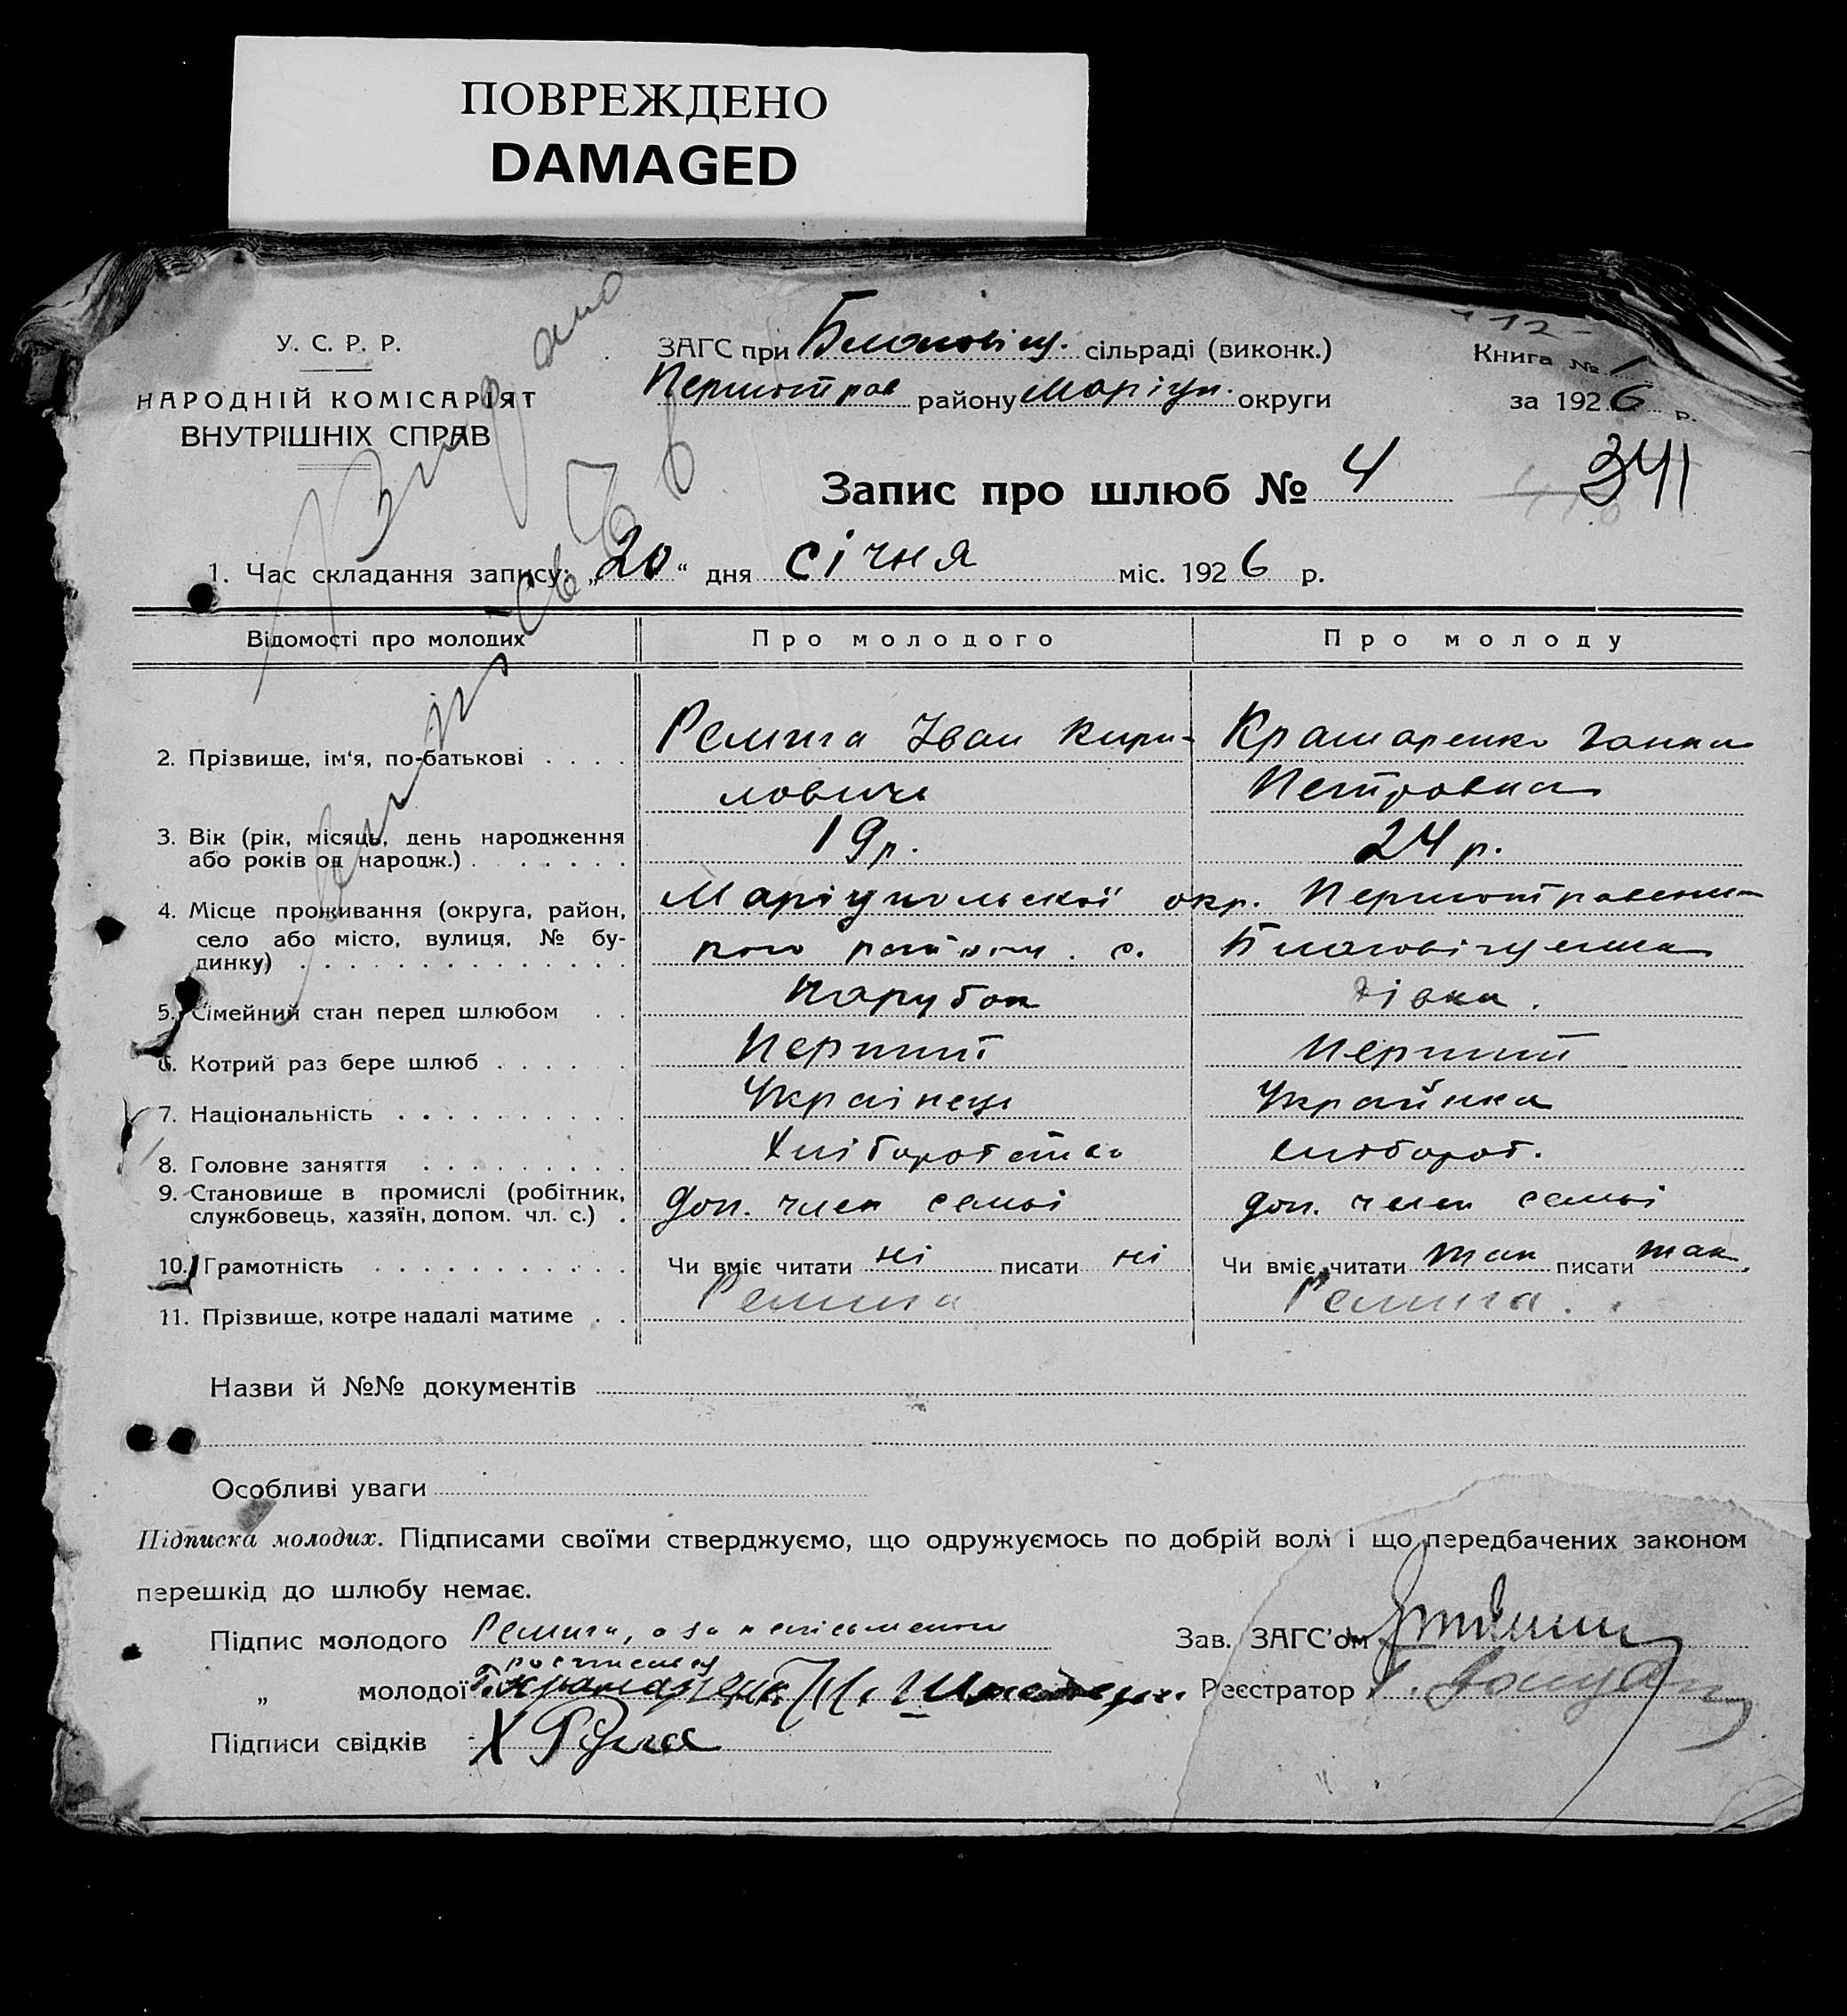 ПОВРЕЖДЕНО
DAMAGED
У. С. Р. Р.
НАРОДНІЙ КОМІСАРІЯТ
ВНУТРІШНІХ СПРАВ
ЗАГС при Благовіщ. сільраді (виконк.)
Першотрав району Маріуп. округи
- 12 -
Книга № 1
за 1926 р.
Запис про шлюб № 4
341
1. Час складання запису: „20“ дня січня міс. 1926 р.
Відомості про молодих Про молодого Про молоду
2. Прізвище, ім‘я, по-батькові . . . . Ремига Іван Кири- Крамаренко Ганна
ловичь Петровна
3. Вік (рік, місяць, день народження
або років од народж.) . . . . . . . 19 р. 24 р.
4. Місце проживання (округа, район, Маріупольскої окр. Першотравен-
село або місто, вулиця, № бу-
динку) . . . . . . . . . . . . . . . район. с. Благовіщенка
5. Сімейний стан перед шлюбом . . Парубок дівка.
6. Котрий раз бере шлюб . . . . . . Перший Перший
7. Національність . . . . . . . . . Українець Українка
8. Головне заняття . . . . . . . . . Хліборобство хлібороб.
9. Становище в промислі (робітник,
службовець, хазяїн, допом. чл. с.) . Доп. член семьі доп. член семьі
10. Грамотність . . . . . . . . . . . Чи вміє читати ні писати ні Чи вміє читати так писати так
11. Прізвище, котре надалі матиме . . Ремига Ремига.
Назви й №№ документів
Особливі уваги
Підписка молодих. Підписами своїми стверджуємо, що одружуємось по добрій волі і що передбачених законом
перешкід до шлюбу немає.
Підпис молодого Ремига, а за
Зав. ЗАГС'ом
„ молодої Крамаренко
Реєстратор
Підписи свідків